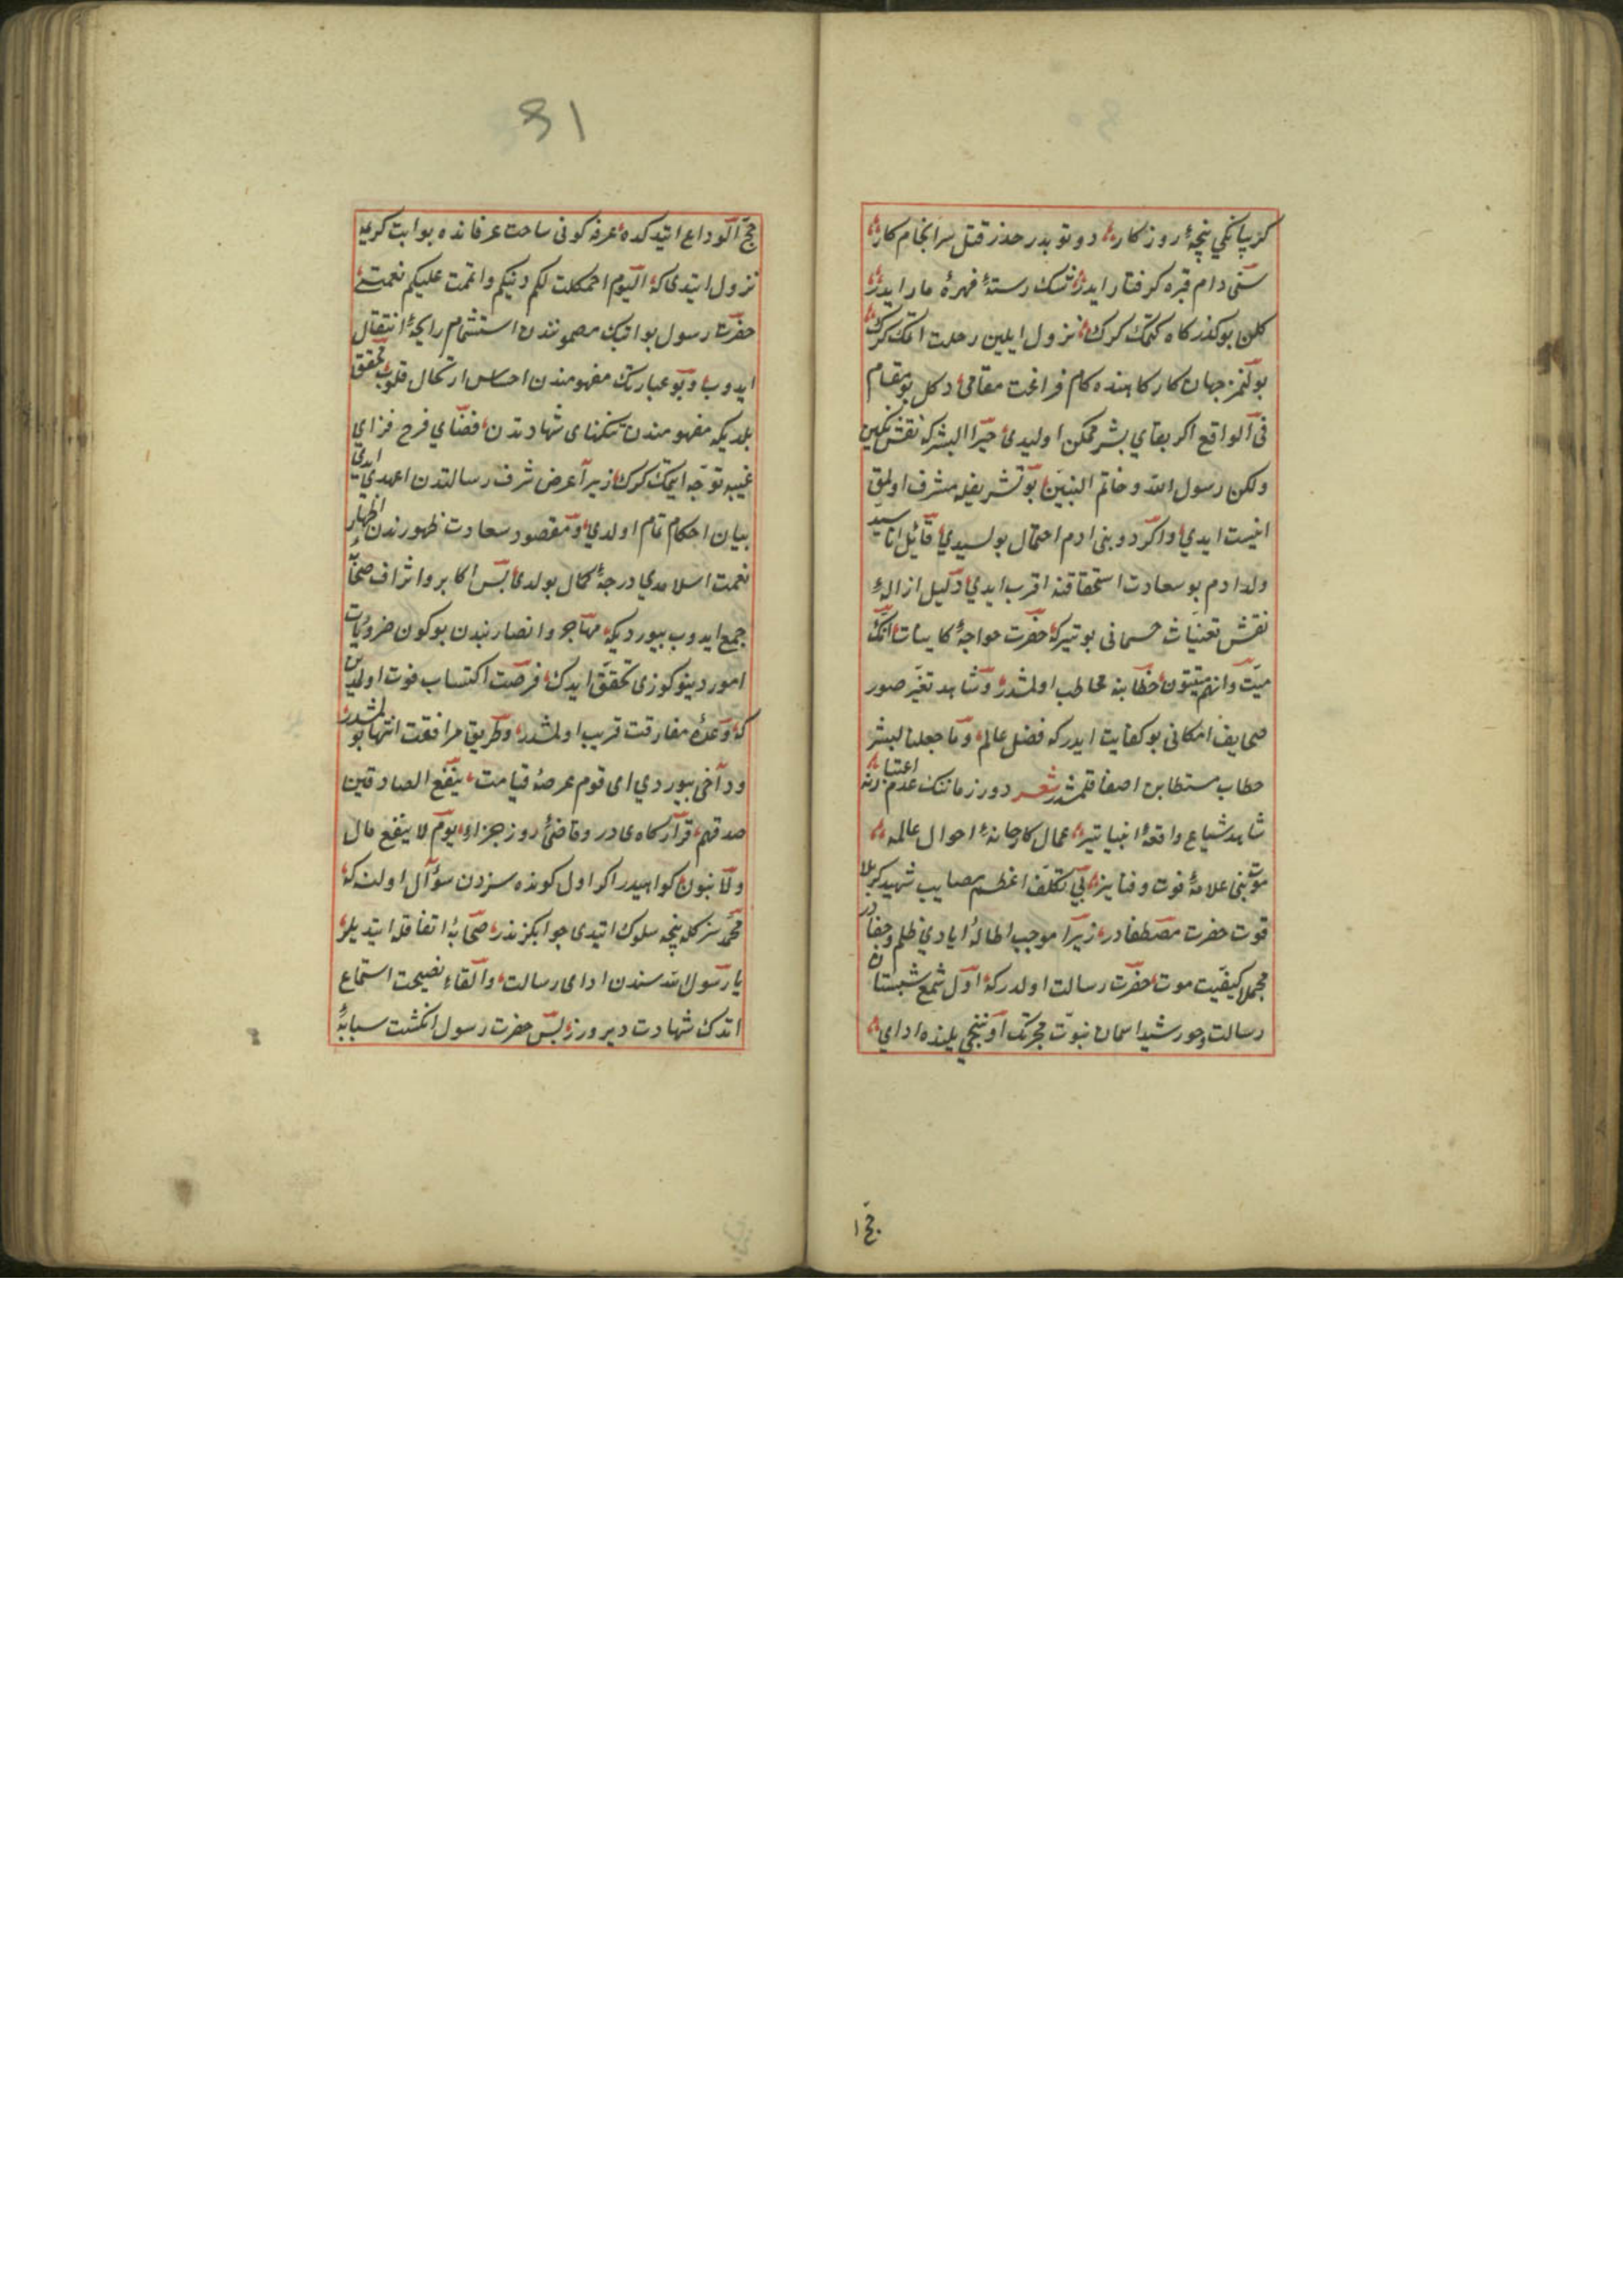 كز پاينكى پنجۀ روزكار دوتوبدر حذر قتل سرانجام كار
سنى دام قبره كرفتار ايدر نتك رستۀ مهرۀ مار ايدر
كلن بوكذركاه كتمك كرك نزول ايلين رحلت اتمك كرك
بولنمز جهان كاركاهنده كام فراغت مقامى دكل بو مقام
فى الواقع اكر بقاي بشر ممكن اوليدى خير البشر كه نقش نكين
ولكن رسول الله وخاتم النبين بو تشريفله مشرف اولمق
انيست ايدي واكر دو بنى ادم احتمال بولسيدي قائل انا سيد
ولد ادم بو سعادت استحقاقنه اقرب ايدي دليل ازالۀ
نقش تعنيات جسمانى بو تيركه حضرت خواجۀ كاينات انك
ميت وانهم ميتون خطابنه مخاطب اولمشدر وشاهد تغير صور
صحايف امكانى بو كفايت ايدركه فضل عالم وما جعلنا لبشر
خطاب مستطابن اصغا قلمشدر شعر دور زماننك عدم اعتبارنه
شاهد شياع واقعۀ انبيا تير عمال كارخانۀ احوال عالمه
موتنى علامۀ فوت وفنا يز بى تكلف اعظم مصايب شهيد كربلا
فوت حضرت مصطفادر زيرا موجب اطالۀ ايادي ظلم وجفادر
مجملا كيفيت موت حضرت رسالت اولدركه اول شمع شبستان
رسالت وخورشيد اسمان نبوت هجرتك اوننجى يلنده اداي
حج ا
81
حج الوداع اتيدكده عرفه كونى ساحت عرفاتده بو ايت كريمه
نزول ايتدى كه اليوم اكملت لكم دينكم واتممت عليكم نعمتى
حضرت رسول بو ايتك مضمونندن استشمام رايحۀ انتقال
ايدوب وبو عبارتك مفهومندن احساس ارتحال قلوب تحقق
بلديكه مفهومندن تنكناى شهادتدن فضاي فرح فزاي
غيبه توجه ايتمك كرك زيرا عرض شرف رسالتدن اعهدي ايدي
بيان احكام تمام اولدي ومقصود سعادت ظهورندن اظهار
نعمت اسلامدي درجۀ كمال بولدى پس اكابر واشراف صحابه
جمع ايدوب بيورديكه مهاجر وانصاربندن بوكون ضروريات
امور دينوكوزى تحقق ايدك فرصت اكتساب فوت اولمدين
كه وعدۀ مفارقت قريب اولمشدر وطريق مرافقت انتها بولمشدر
ودآخى بيوردي اى قوم عرصۀ قيامت ينفع الصادقين
صدقهم قراركاهى در وقاضئ روز جزا يوم لا ينفع مال
ولا بنون كواهيدر اكر اول كونده سزدن سؤال اولنه كه
محمد سزكله نيجه سلوك ايتدى جوابكز ندر صحابۀ اتفاقله ايتديلر
يا رسول الله سندن اداى رسالت والقاء نصيحت استماع
اتدك شهادت ديرورز پس حضرت رسول انكشت سبابۀ